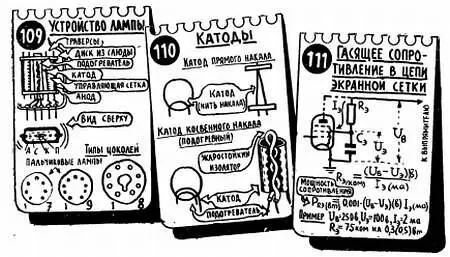 109
УСТРОЙСТВО ЛАМПЫ
ТРАВЕРСЫ
ДИСК ИЗ СЛЮДЫ
ПОДОГРЕВАТЕЛЬ
КАТОД
УПРАВЛЯЮЩАЯ СЕТКА
АНОД
ВИД СВЕРХУ
А С К П
ТИПЫ ЦОКОЛЕЙ
ПАЛЬЧИКОВЫЕ ЛАМПЫ
1 7 1 9 1 8
110
КАТОДЫ
КАТОД ПРЯМОГО НАКАЛА
КАТОД
(НИТЬ НАКАЛА)
КАТОД КОСВЕННОГО НАКАЛА
(ПОДОГРЕВНЫЙ)
ЖАРОСТОЙКИЙ
ИЗОЛЯТОР
КАТОД
ПОДОГРЕВАТЕЛЬ
111
ГАСЯЩЕЕ СОПРО-
ТИВЛЕНИЕ В ЦЕПИ
ЭКРАННОЙ СЕТКИ
Iэ
Rэ
Cэ
Uэ
Uв
К ВЫПРЯМИТЕЛЮ
Rэ(ком) = (Uв-Uэ)(в) / Iэ(ма)
МОЩНОСТЬ
СОПРОТИВЛЕНИЯ
PRэ(вт) = 0,001·(Uв-Uэ)(в) Iэ(ма)
ПРИМЕР Uв=250в, Uэ=100в, Iэ=2 ма
Rэ=75 ком на 0,3(0,5)вт